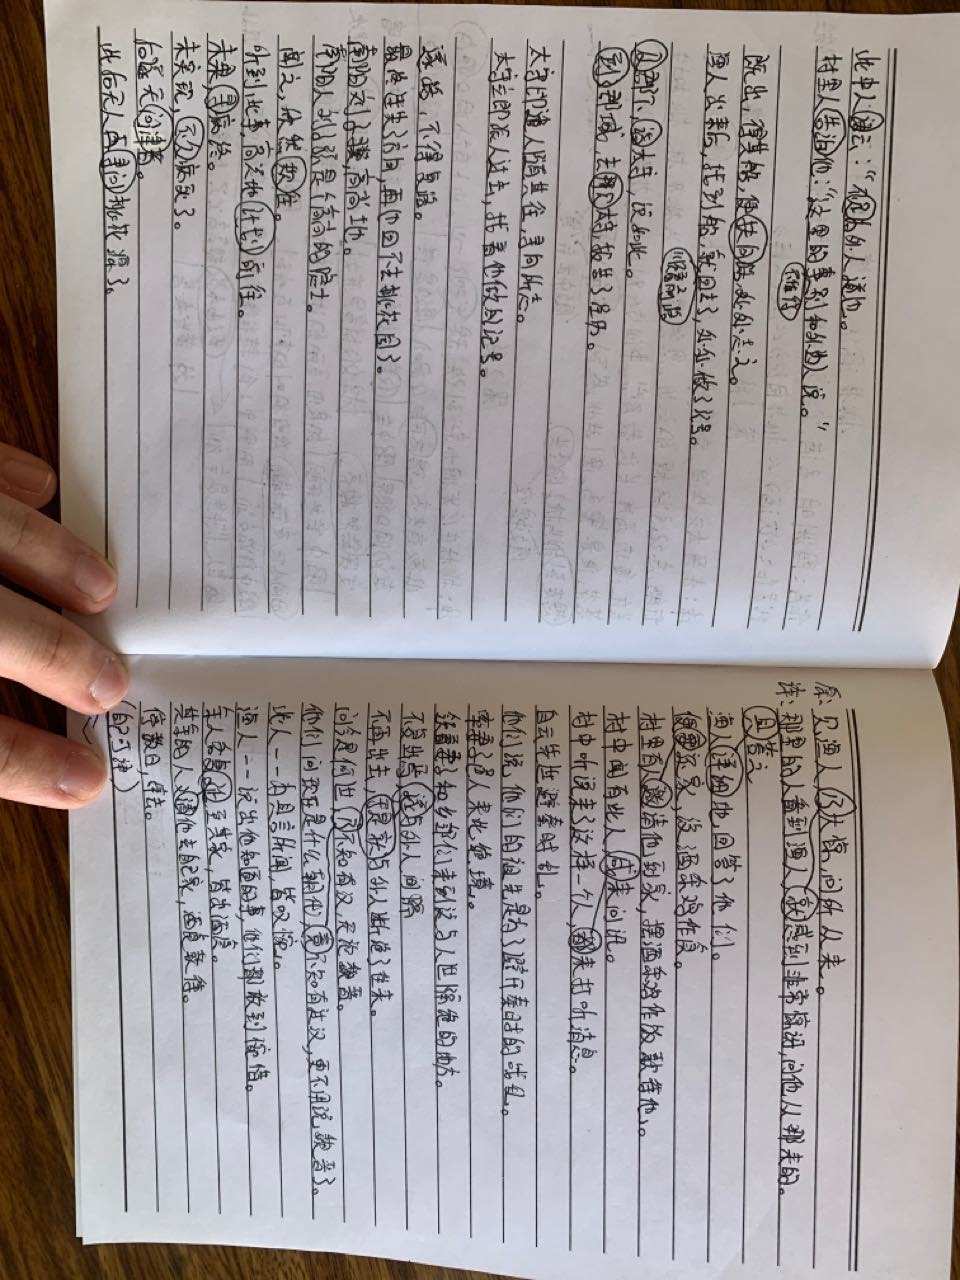 此中人语云："不足为外人道也。
村里人告诉他："这里的事别和外为人说。"
不值得
既出，得其船，便扶向路，处处志之。
渔人出来后，找到船，就回去，处处做了记号。
顺着之前的路
及郡下，诣太守，说如此。
到郡城，去拜太守，报告了经历。
太守即遣人随其往，寻向所志。
太守立即派人过去，找着他做的记号。
遂迷，不得复路。
最终迷失方向，再也回不去桃花园了。
南阳刘子骥，高尚士也。
南阳人刘子骥是个高尚的隐士。
闻之，欣然规往。
听到此事，高兴地计划前往。
未果，寻病终。
未实现，不久病死了。
后遂无问津者。
此后无人再寻访桃花源了。
原：见渔人，乃大惊，问所从来。
译：那里的人看到渔人，就感到非常惊讶，问他从那来的。
具答之
渔人详细地回答了他们。
便要还家，设酒杀鸡作食。
村里有人邀请他到家，摆酒杀鸡作饭款待他。
村中闻有此人，咸来问讯。
村中听说来了这样一个人，都来打听消息。
自云先世避秦时乱，
他们说，他们的祖先是为了避开秦时的战乱。
率妻子邑人来此绝境，
领着妻子和乡邻们来到这与人世隔绝的地方。
不复出焉，遂与外人间隔
不再出去，于是就与外人断绝了往来。
问今是何世，乃不知有汉，无论魏晋。
他们问现在是什么朝代，竟不知有过汉，更不用说魏晋了。
此人一一为具言所闻，皆叹惋。
渔人一一说出他知道的事，他们都感到惋惜。
余人各复延至其家，皆出酒食。
其余的人邀请他去自己家，酒食款待。
停数日，辞去。
(自己译)